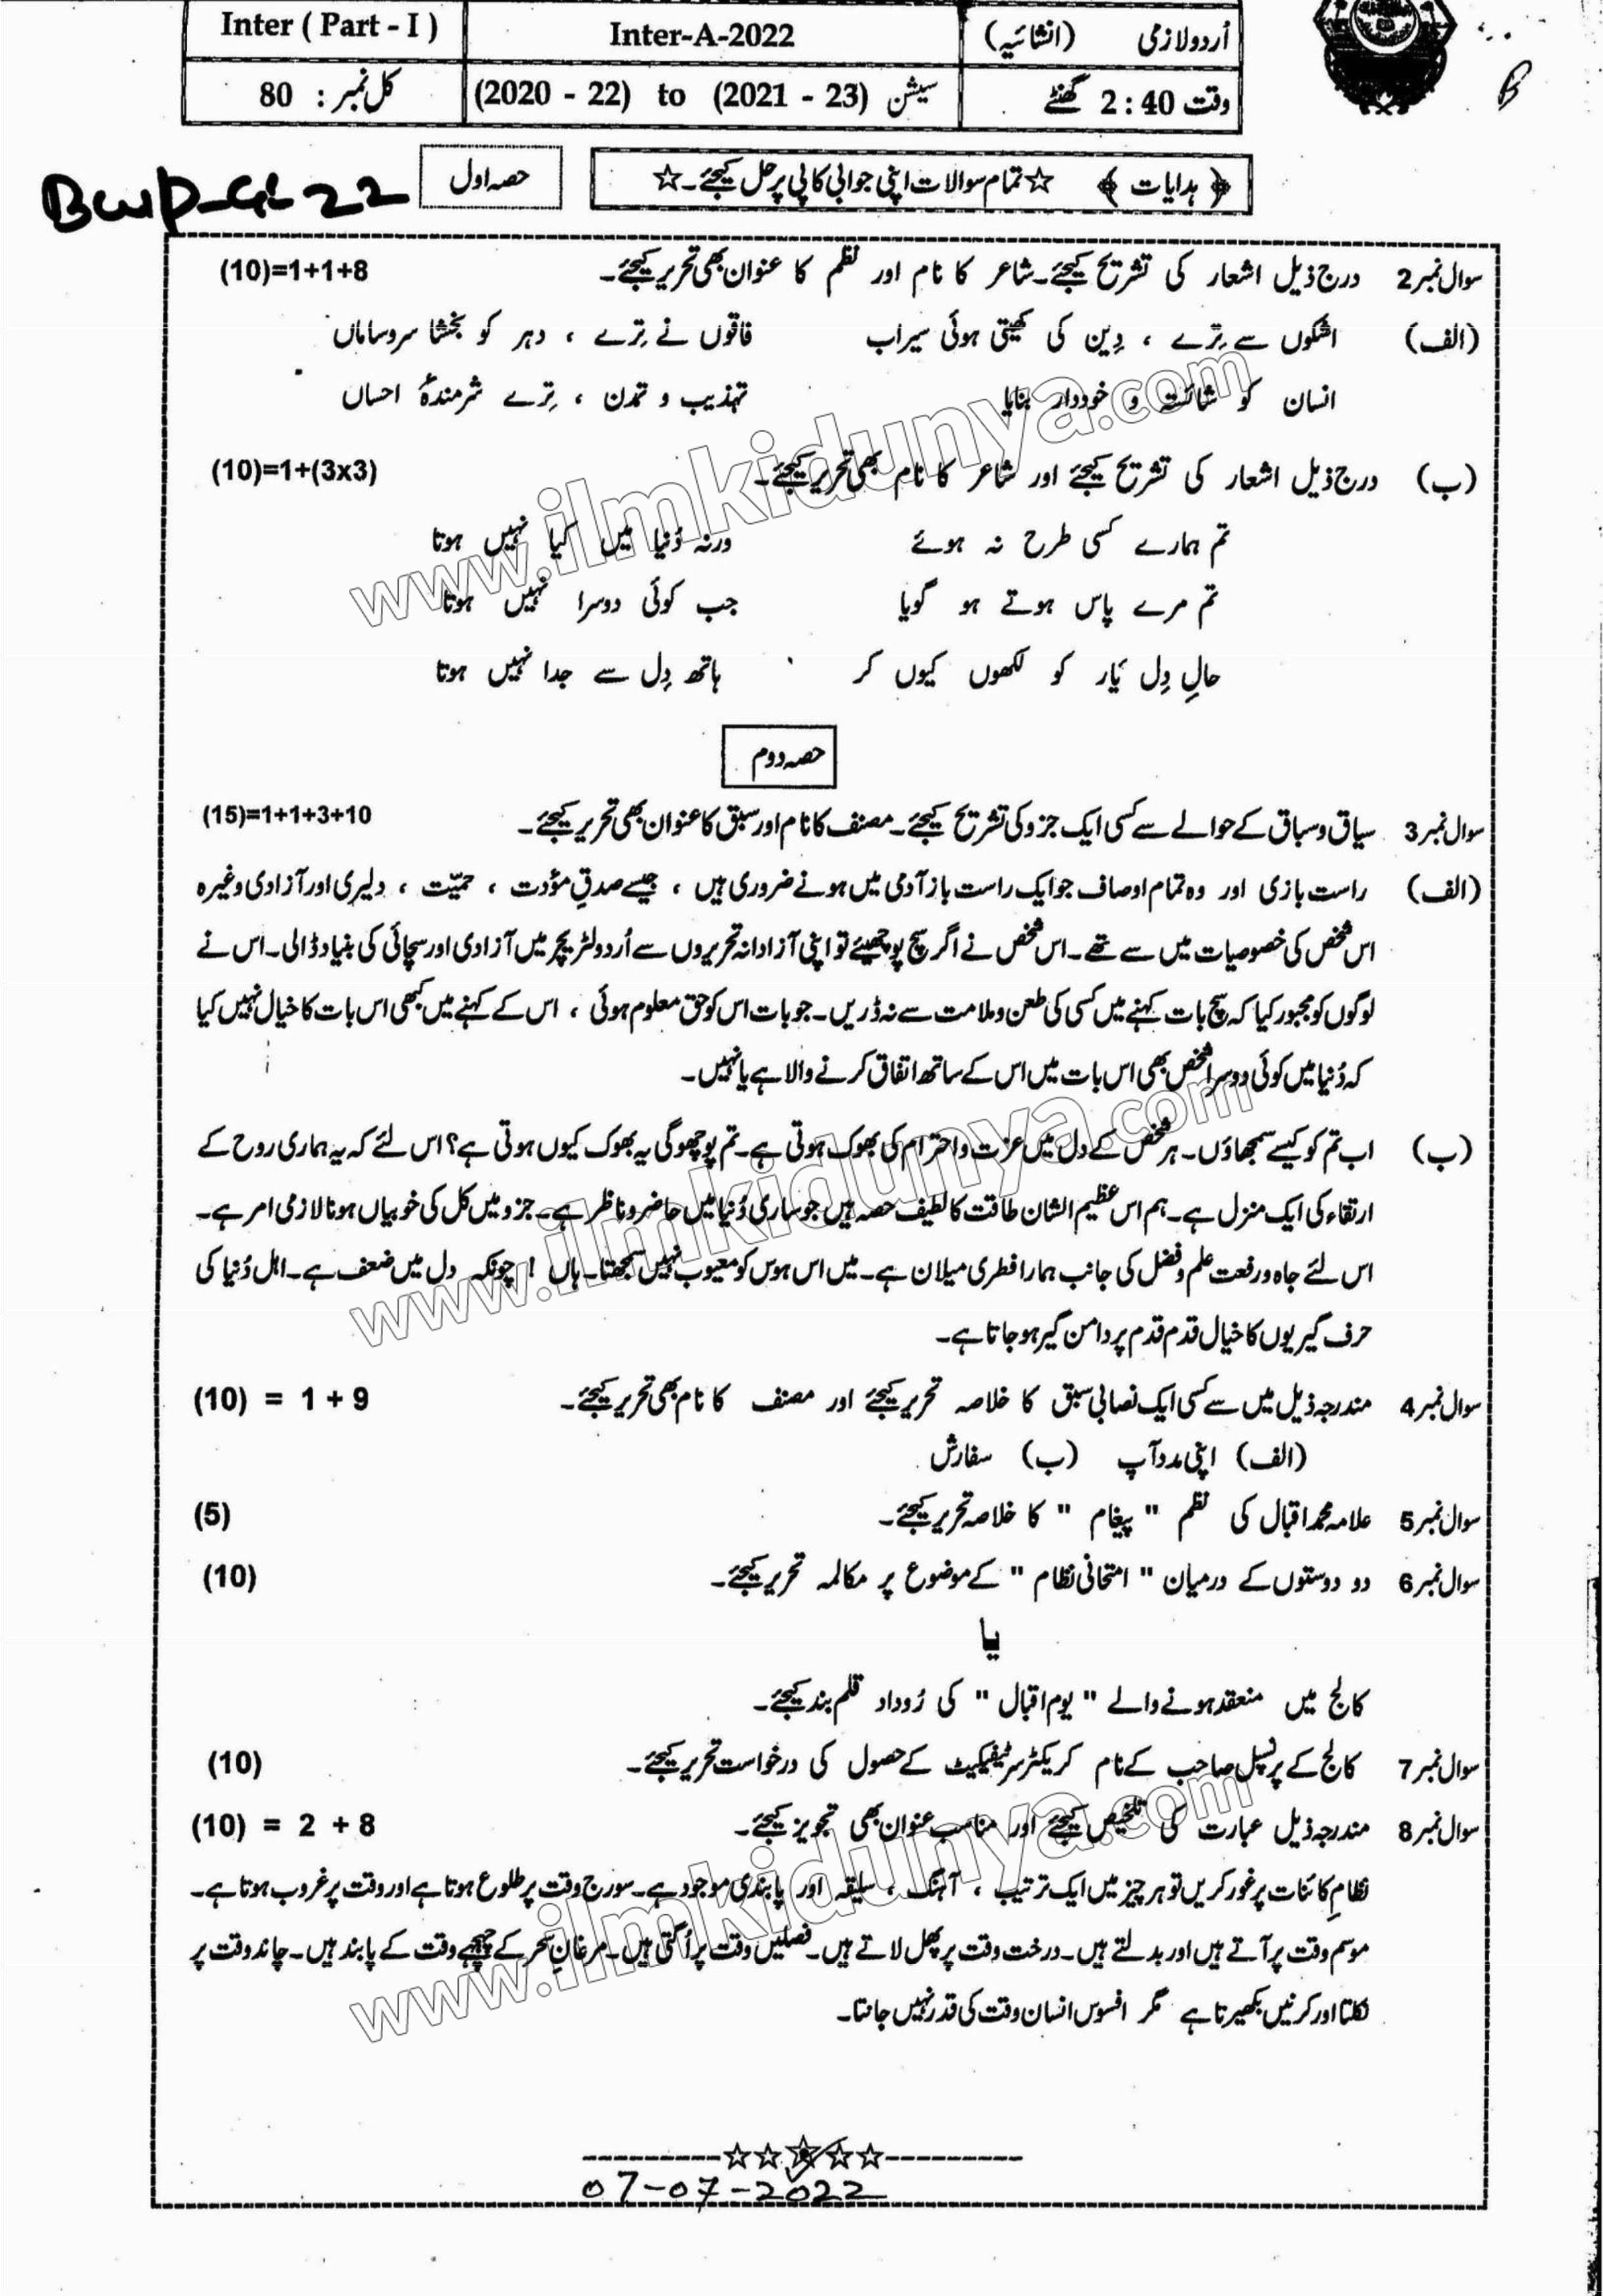 اُردو لازمی (انشائیہ) Inter-A-2022 Inter ( Part - I )
وقت 2 : 40 گھنٹے سیشن (2020 - 22) to (2021 - 23) کل نمبر : 80
﴿ ہدایات ﴾ ☆ تمام سوالات اپنی جوابی کاپی پر حل کیجئے۔ ☆
حصہ اول
سوال نمبر 2 درج ذیل اشعار کی تشریح کیجئے۔ شاعر کا نام اور نظم کا عنوان بھی تحریر کیجئے۔ (10)=1+1+8
(الف) اشکوں سے تِرے ، دِین کی کھیتی ہوئی سیراب فاقوں نے تِرے ، دہر کو بخشا سروساماں
انسان کو شائستہ و خوددار بنایا تہذیب و تمدن ، تِرے شرمندۂ احساں
(ب) درج ذیل اشعار کی تشریح کیجئے اور شاعر کا نام بھی تحریر کیجئے۔ (10)=1+(3x3)
تم ہمارے کسی طرح نہ ہوئے ورنہ دُنیا میں کیا نہیں ہوتا
تم مرے پاس ہوتے ہو گویا جب کوئی دوسرا نہیں ہوتا
حالِ دِل یار کو لکھوں کیوں کر ہاتھ دِل سے جدا نہیں ہوتا
حصہ دوم
سوال نمبر 3 سیاق و سباق کے حوالے سے کسی ایک جزو کی تشریح کیجئے۔ مصنف کا نام اور سبق کا عنوان بھی تحریر کیجئے۔ (15)=1+1+3+10
(الف) راست بازی اور وہ تمام اوصاف جو ایک راست باز آدمی میں ہونے ضروری ہیں ، جیسے صدقِ مؤدت ، حمیّت ، دلیری اور آزادی وغیرہ
اس شخص کی خصوصیات میں سے تھے۔ اس شخص نے اگر سچ پوچھیئے تو اپنی آزادانہ تحریروں سے اُردو لٹریچر میں آزادی اور سچائی کی بنیاد ڈالی۔ اس نے
لوگوں کو مجبور کیا کہ سچ بات کہنے میں کسی کی طعن و ملامت سے نہ ڈریں۔ جو بات اس کو حق معلوم ہوئی ، اس کے کہنے میں کبھی اس بات کا خیال نہیں کیا
کہ دُنیا میں کوئی دوسرا شخص بھی اس بات میں اس کے ساتھ اتفاق کرنے والا ہے یا نہیں۔
(ب) اب تم کو کیسے سمجھاؤں۔ ہر شخص کے دل میں عزت و احترام کی بھوک ہوتی ہے۔ تم پوچھوگی یہ بھوک کیوں ہوتی ہے؟ اس لئے کہ یہ ہماری روح کے
ارتقاء کی ایک منزل ہے۔ ہم اس عظیم الشان طاقت کا لطیف حصہ ہیں جو ساری دُنیا میں حاضر و ناظر ہے۔ جزو میں کل کی خوبیاں ہونا لازمی امر ہے۔
اس لئے جاہ و رفعت علم و فضل کی جانب ہمارا فطری میلان ہے۔ میں اس ہوس کو معیوب نہیں سمجھتا۔ ہاں ! چونکہ دل میں ضعف ہے۔ اہل دُنیا کی
حرف گیریوں کا خیال قدم قدم پر دامن گیر ہو جاتا ہے۔
سوال نمبر 4 مندرجہ ذیل میں سے کسی ایک نصابی سبق کا خلاصہ تحریر کیجئے اور مصنف کا نام بھی تحریر کیجئے۔ (10) = 1 + 9
(الف) اپنی مدد آپ (ب) سفارش
سوال نمبر 5 علامہ محمد اقبال کی نظم " پیغام " کا خلاصہ تحریر کیجئے۔ (5)
سوال نمبر 6 دو دوستوں کے درمیان " امتحانی نظام " کے موضوع پر مکالمہ تحریر کیجئے۔ (10)
یا
کالج میں منعقد ہونے والے " یومِ اقبال " کی رُوداد قلم بند کیجئے۔
سوال نمبر 7 کالج کے پرنسپل صاحب کے نام کریکٹر سرٹیفکیٹ کے حصول کی درخواست تحریر کیجئے۔ (10)
سوال نمبر 8 مندرجہ ذیل عبارت کی تلخیص کیجئے اور مناسب عنوان بھی تجویز کیجئے۔ (10) = 2 + 8
نظامِ کائنات پر غور کریں تو ہر چیز میں ایک ترتیب ، آہنگ ، سلیقہ اور پابندی موجود ہے۔ سورج وقت پر طلوع ہوتا ہے اور وقت پر غروب ہوتا ہے۔
موسم وقت پر آتے ہیں اور بدلتے ہیں۔ درخت وقت پر پھل لاتے ہیں۔ فصلیں وقت پر اُگتی ہیں۔ مرغانِ سحر کے چہچہے وقت کے پابند ہیں۔ چاند وقت پر
نکلتا اور کرنیں بکھیرتا ہے مگر افسوس انسان وقت کی قدر نہیں جانتا۔
---------☆☆☆☆☆---------
07-07-2022
www.ilmkidunya.com
www.ilmkidunya.com
www.ilmkidunya.com